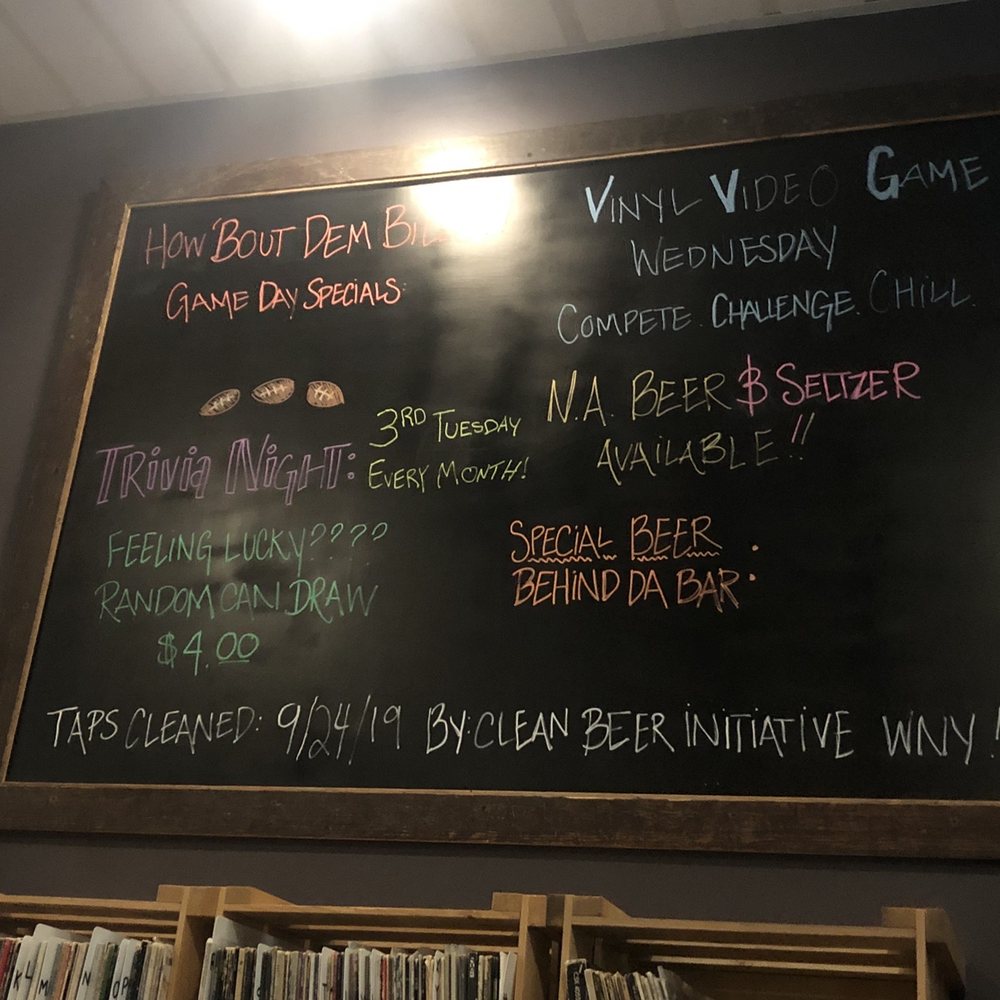 How 'Bout Dem
Game Day Specials:
Trivia Night: 3rd Tuesday
Every Month!
Feeling Lucky????
Random Can Draw
$4.00
Vinyl Video Game
Wednesday
Compete. Challenge. Chill.
N.A. Beer & Seltzer
Available!!
Special Beer
Behind Da Bar:
Taps Cleaned: 9/24/19 By: Clean Beer Initiative WNY!
K L M N O P